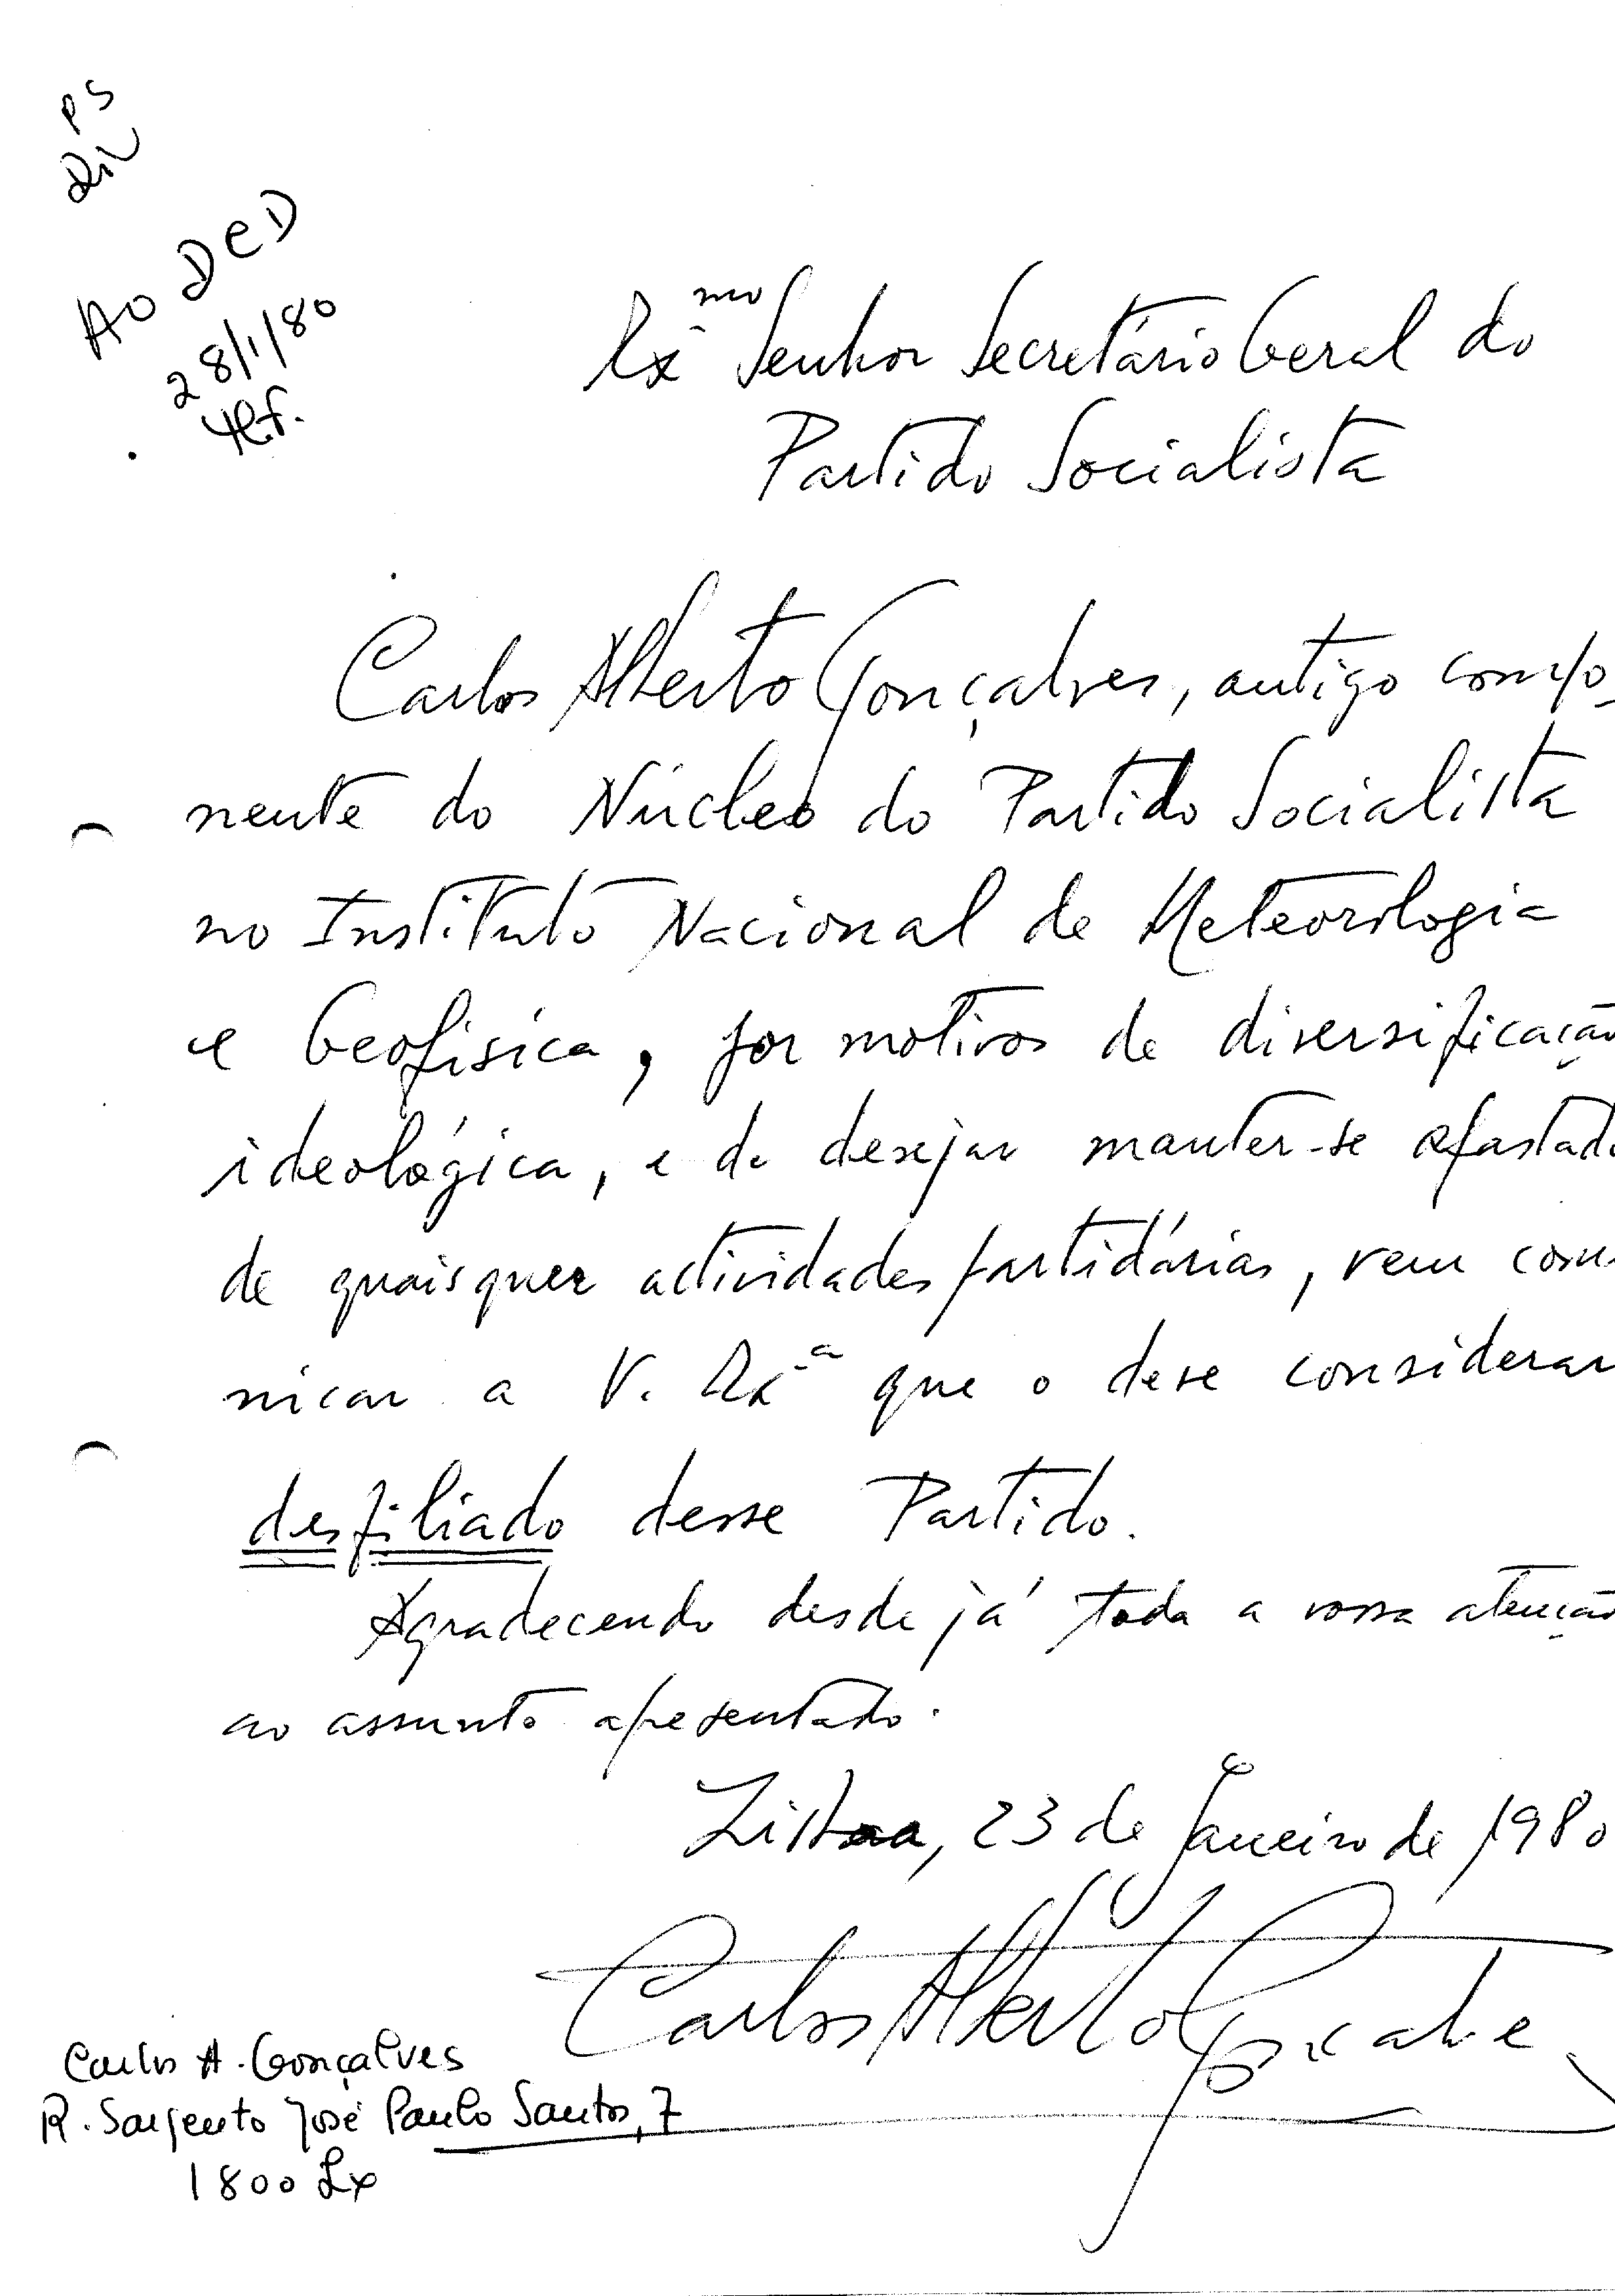 PS
AO DCD
28/1/80
Exmo Senhor Secretário Geral do
Partido Socialista
Carlos Alberto Gonçalves, antigo compo-
nente do Núcleo do Partido Socialista
no Instituto Nacional de Meteorologia
e Geofísica, por motivos de diversificação
ideológica, e de desejar manter-se afastado
de quaisquer actividades partidárias, vem comu
nicar a V. Exª que o deve considerar
desfiliado desse Partido.
Agradecendo desde já toda a vossa atenção
ao assunto apresentado.
Lisboa, 23 de Janeiro de 1980
Carlos Alberto Gonçalves
Carlos A. Gonçalves
R. Sargento José Paulo Santos, 7
1800 Lx